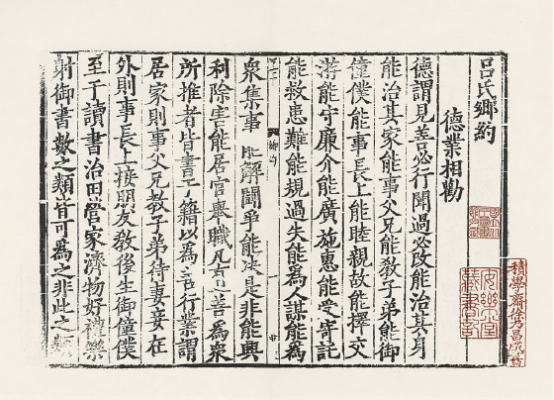 積學齋徐乃昌藏書
呂氏鄉約
德業相勸
德謂見善必行聞過必改能治其身
能治其家能事父兄能教子弟能御
僮僕能事長上能睦親故能擇交
游能守廉介能廣施惠能受寄託
能救患難能規過失能為人謀能為
衆集事能解鬭爭能決是非能興
鄉約
利除害能居官舉職凡有一善為衆
所推者皆書于籍以為善行業謂
居家則事父兄教子弟待妻妾在
外則事長上接朋友教後生御僮僕
至于讀書治田營家濟物好禮樂
射御書數之類皆可為之非此之類